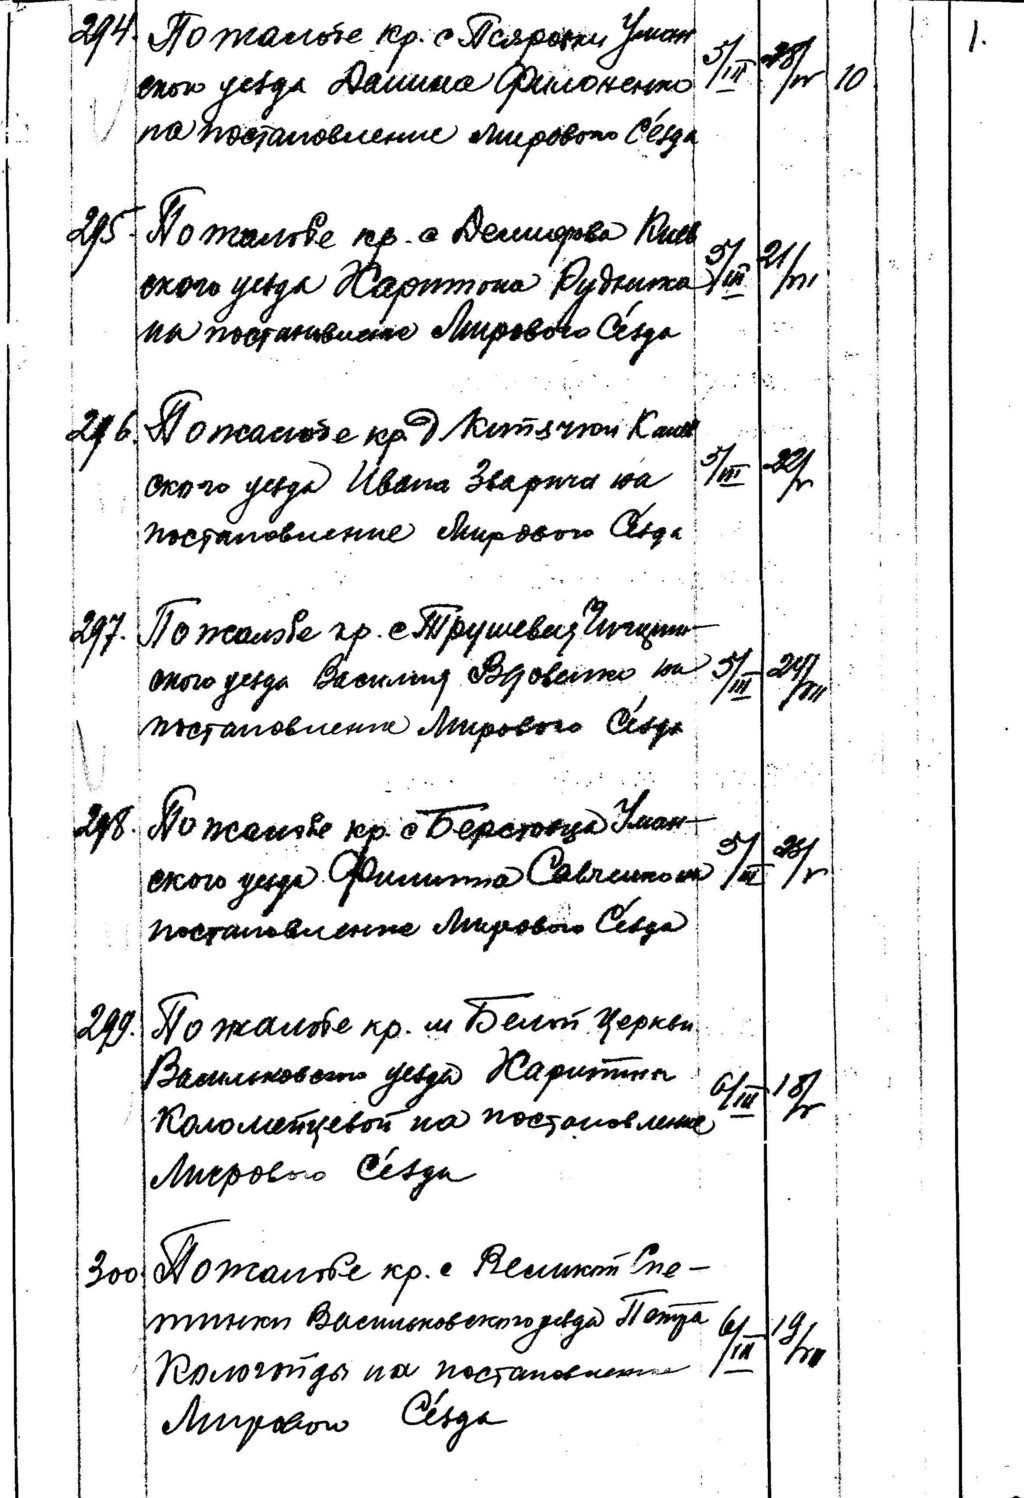 294. По жалобе кр. с Псяровки Уман
ского уезда Данила Филоненко 5/III 28/V 10 1.
на постановление Мирового Сезда
295. По жалобе кр. с Демидова Киев
ского уезда Харитона Рудника 5/III 21/VII
на постановление Мирового Сезда
296. По жалобе кр д Канев
ского уезда Ивана Зварича на 5/III 22/V
постановление Мирового Сезда
297. По жалобе кр. с Трушевец Чигирин-
ского уезда Василия Вдовенко на 5/III 24/VII
постановление Мирового Сезда
298. По жалобе кр. с Берестовца Уман-
ского уезда Филиппа Савченко на 5/III 28/V
постановление Мирового Сезда
299. По жалобе кр. м Белой Церкви
Васильковского уезда Харитины 6/III 18/V
Коломейцевой на постановление
Мирового Сезда
300. По жалобе кр. с Великой Сне-
тинки Васильковского уезда Петра 6/III 19/VII
на постановление
Мирового Сезда